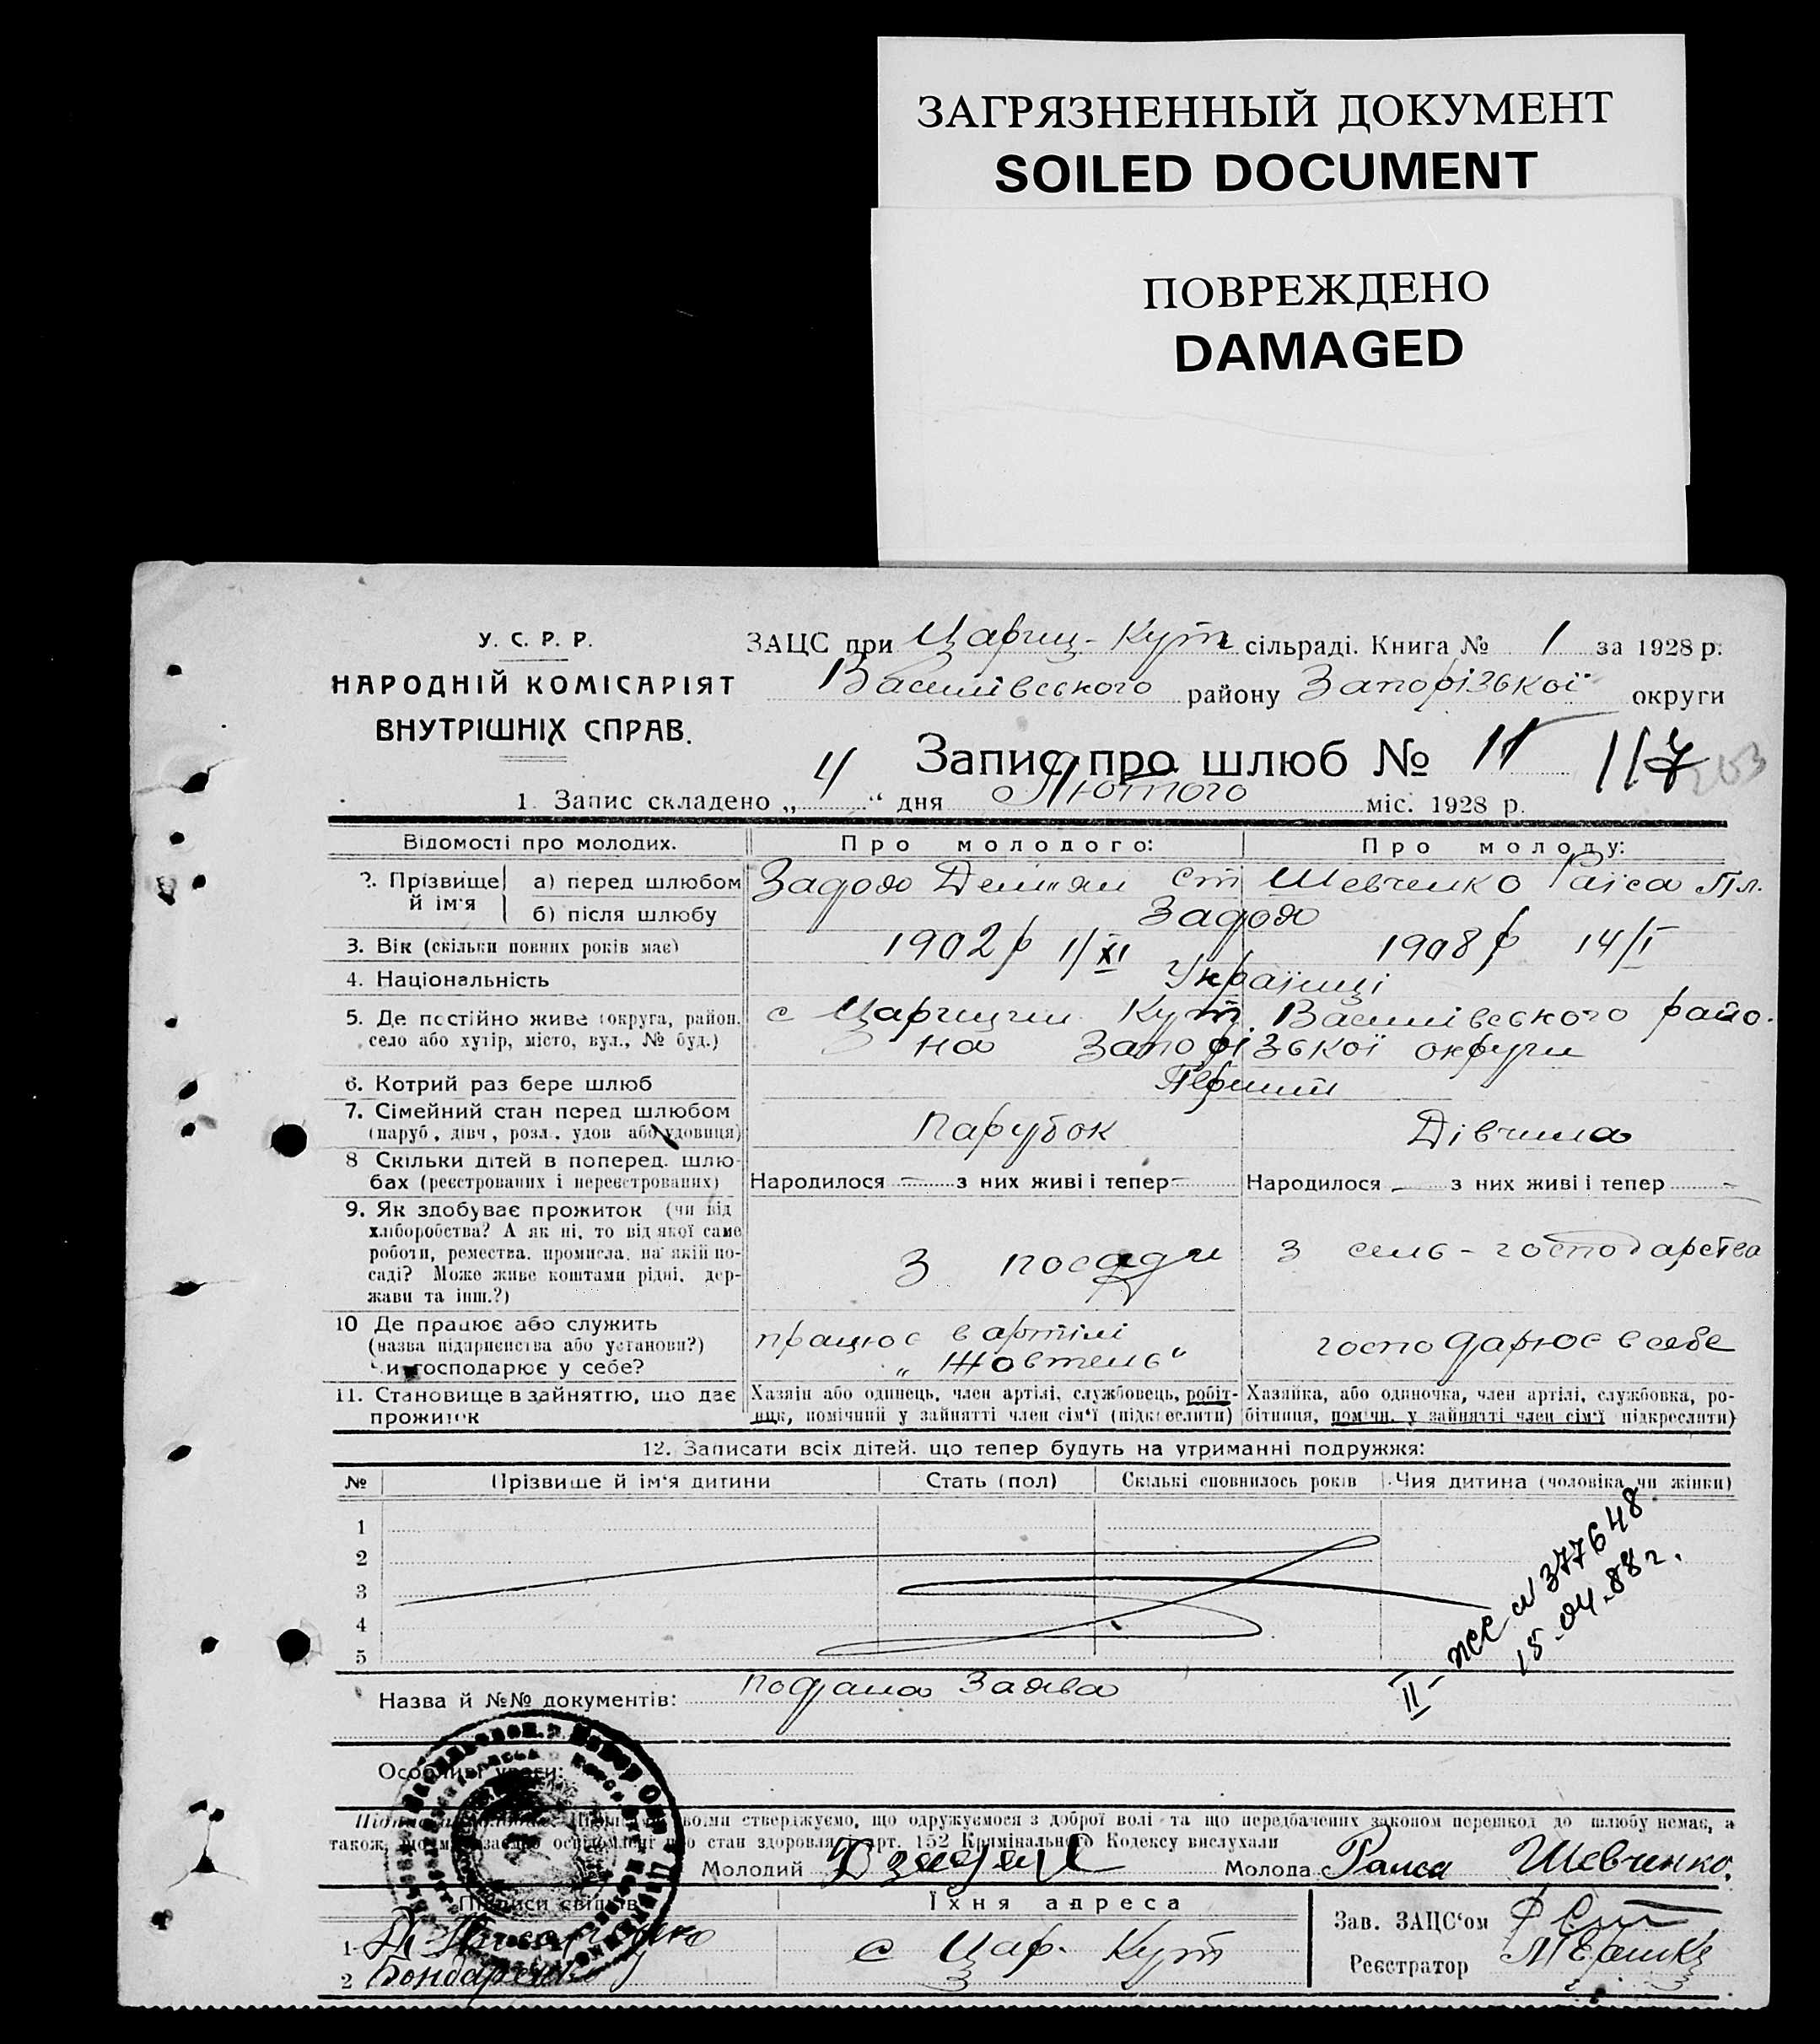 ЗАГРЯЗНЕННЫЙ ДОКУМЕНТ
SOILED DOCUMENT
ПОВРЕЖДЕНО
DAMAGED
У. С. Р. Р.
НАРОДНІЙ КОМІСАРІЯТ
ВНУТРІШНІХ СПРАВ.
ЗАЦС при Цариц-Кут сільраді. Книга № 1 за 1928 р.
Василівського району Запорізької округи
Запис про шлюб № 11 117
1. Запис складено „4“ дня Лютого міс. 1928 р.
Відомості про молодих. Про молодого: Про молоду:
2. Прізвище й ім'я а) перед шлюбом Задоя Деміян Ст Шевченко Раїса Пл.
б) після шлюбу Задоя
3. Вік (скільки повних років має) 1902 р 1/XI 1908 р 14/I
4. Національність Українці
5. Де постійно живе (округа, район, с Царицин Кут, Василівського райо-
село або хутір, місто, вул., № буд.) на Запорізької округи
6. Котрий раз бере шлюб Перший
7. Сімейний стан перед шлюбом Парубок Дівчина
(паруб., дівч., розл., удов або удовиця)
8 Скільки дітей в поперед. шлю-
бах (реєстрованих і нереєстрованих) Народилося — з них живі і тепер — Народилося — з них живі і тепер —
9. Як здобуває прожиток (чи від
хліборобства? А як ні, то від якої саме
роботи, ремества, промисла, на якій по- З посади З сель-господарства
саді? Може живе коштами рідні, дер-
жави та інш.?)
10 Де працює або служить працює в артілі
(назва підприємства або установи?) „Жовтень“ господарює в себе
чи господарює у себе?
11. Становище в зайняттю, що дає Хазяїн або одинець, член артілі, службовець, робіт- Хазяйка, або одиночка, член артілі, службовка, ро-
прожиток ник, помічний у зайнятті член сім'ї (підкреслити) бітниця, помічн. у зайнятті член сім'ї підкреслити)
12. Записати всіх дітей, що тепер будуть на утриманні подружжя:
№ Прізвище й ім'я дитини Стать (пол) Скількі сповнилось років Чия дитина (чоловіка чи жінки)
1
2
3
4
5
377648
15.04.88 г.
Назва й №№ документів: подана Заява
Особливі уваги:
воїми стверджуємо, що одружуємося з доброї волі та що передбачених законом перешкод до шлюбу немає, а
також, що ми взаємно освідомлені про стан здоровля й арт. 152 Крімінального Кодексу вислухали
Молодий Молода Раиса Шевченко.
Підписи свідків Їхня адреса
1
с Цар. Кут
2 Бондаренко
Зав. ЗАЦС'ом
Реєстратор